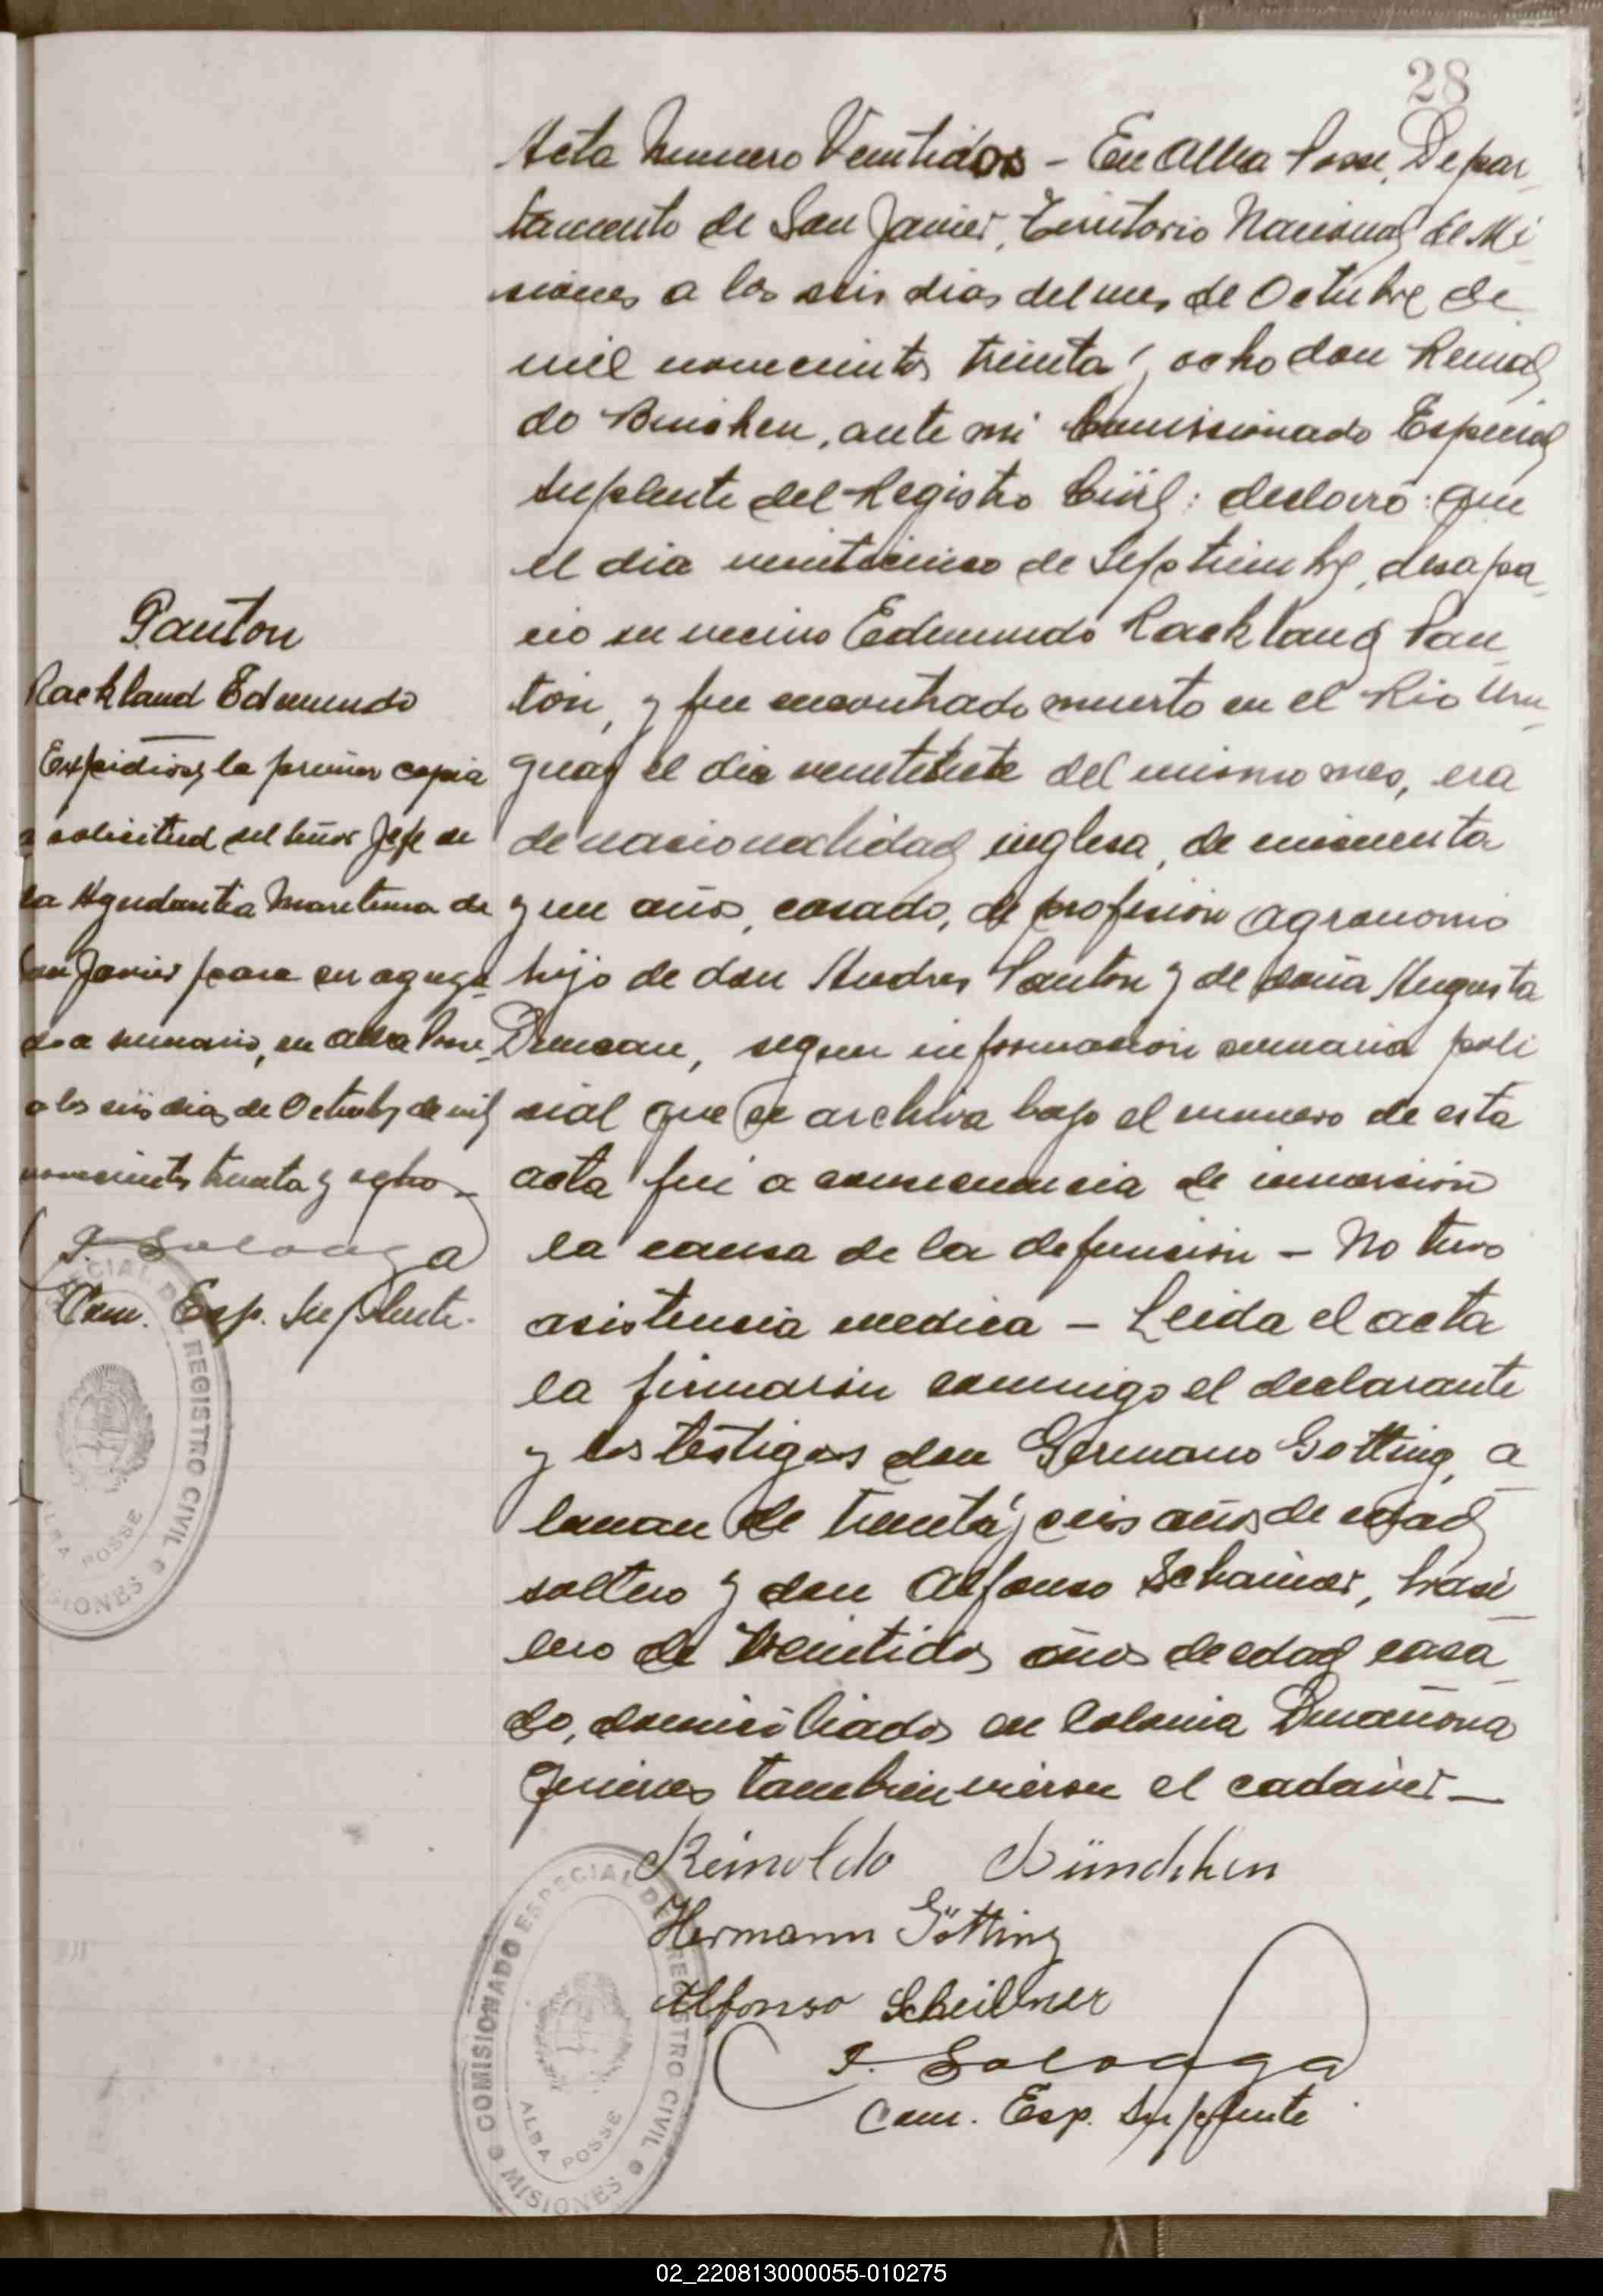 28
Acta Numero Veintidos - En Alba Posse, Depar-
tamento de San Javier, Territorio Nacional de Mi-
siones a los seis dias del mes de Octubre de
mil novecientos treinta y ocho don Reinal
do , ante mi Comissionado Especial
Suplente del Registro Civil: declaró: que
el dia veinticinco de Septiembre, desapa-
ció su vecino Edmundo Rackland Pan-
ton, y fue encontrado muerto en el Rio Uru-
guay el dia del mismo mes, era
de nacionalidad inglesa, de cincuenta
y un años, casado, de profesion agronomo
hijo de don Andres Panton y de doña Augusta
Duncan, segun informacion sumaria poli
sial que se archiva bajo el numero de esta
acta fué a consecuencia de inmersion
la causa de la defuncion - No tuvo
asistencia medica - Leida el acta
la firmaron conmigo el declarante
y los testigos don Germano Gotting, a-
leman de treinta y seis años de edad
soltero y don Alfonso , brasi
lero de Veintidos años de edad casa-
do, domiciliados en Colonia
quienes tambien vieron el cadaver -
Panton
Rackland Edmundo
Expidiose la primer copia
a solicitud del Señor Jefe de
la Ayudantia Maritima de
San Javier para ser agrega-
do a sumario, en Alba Posse
a los seis dias de Octubre de mil
novecientos treinta y ocho -
J. Soloaga
Com. Esp. Suplente.
CIAL DEL REGISTRO CIVIL
ALBA POSSE
MISIONES
Reinoldo Bündchen
Hermann Götting
Alfonso Scheibner
J. Soloaga
Com. Esp. Suplente
COMISIONADO ESPECIAL DEL REGISTRO CIVIL
ALBA POSSE
MISIONES
02_220813000055-010275